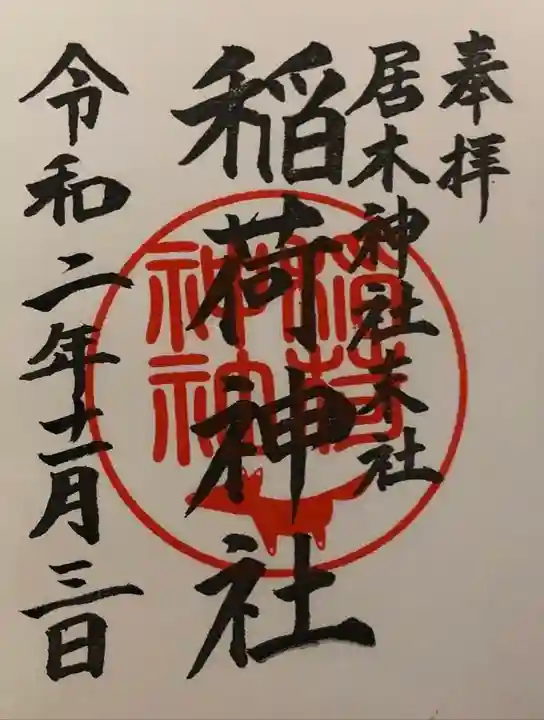 奉拝
居木神社末社
稲荷神社
令和二年十一月三日
稲荷